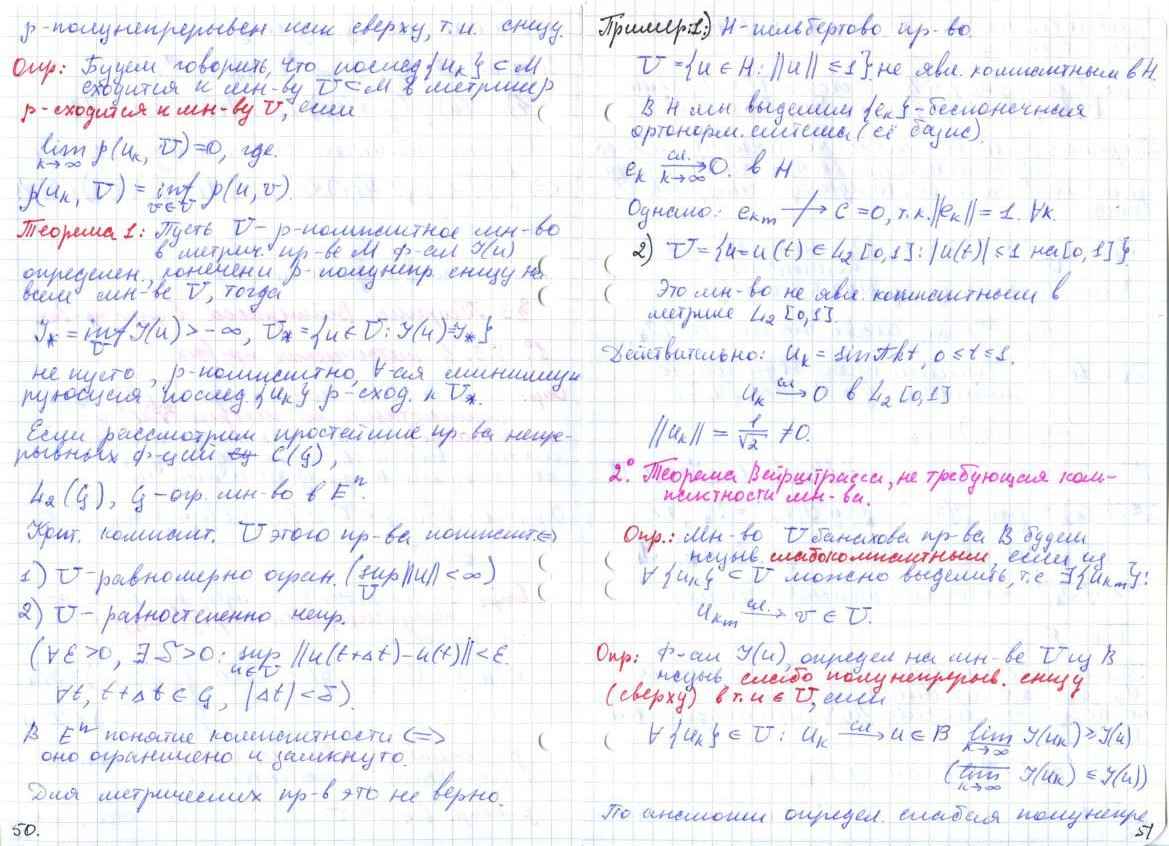 ρ-полунепрерывен как сверху, т.и. снизу.
Опр: Будем говорить, что послед {u_k} ⊂ M
сходится к мн-ву U ⊂ M в метрике ρ
ρ-сходится к мн-ву U, если
lim_{k→∞} ρ(u_k, U)=0, где.
ρ(u_k, U) = inf_{v∈U} ρ(u, v).
Теорема 1: Пусть U - ρ-компактное мн-во
в метрич. пр-ве M ф-ал J(u)
определен, конечен и ρ-полунепр снизу на
всем мн-ве U, тогда
J_* = inf_U J(u) > -∞, U_* = {u∈U: J(u)=J_*}.
не пусто, ρ-компактно, ∀-ая минимизи
рующая послед. {u_k} ρ-сход. к U_*.
Если рассмотрим простейшие пр-ва непре-
рывных ф-ций C(G),
L_2(G), G-огр. мн-во в E^n.
Крит. компакт. U этого пр-ва компакт.⇔
1) U-равномерно огран. (sup_U ||u|| < ∞)
2) U - равностепенно непр.
(∀ε>0, ∃ δ>0: sup_{u∈U} ||u(t+Δt)-u(t)||<ε.
∀t, t+Δt ∈ G, |Δt|<δ).
В E^n понятие компактности ⇔
оно ограничено и замкнуто.
Для метрических пр-в это не верно.
50.
Пример:1:) H-гильбертово пр-во.
U = {u∈H: ||u|| ≤1} не явл. компактным в H.
В H мы выделим {e_k}-бесконечная
ортонорм. система (её базис).
e_k сл.→_{k→∞} 0. в H
Однако: e_{km} ↛ c =0, т.к. ||e_k|| = 1. ∀k.
2) U={u=u(t) ∈ L_2[0,1]: |u(t)| ≤1 на [0,1]}.
Это мн-во не явл. компактным в
метрике L_2[0,1].
Действительно: u_k = sin πkt, 0≤t≤1.
u_k сл.→ 0 в L_2[0,1]
||u_k|| = 1/√2 ≠0.
2° Теорема Вейрштрасса, не требующая ком-
пактности мн-ва.
Опр.: Мн-во U банахова пр-ва B будем
назыв. слабокомпактным, если из
∀{u_k} ⊂ U можно выделить, т.е ∃{u_{km}}:
u_{km} сл.→ v ∈ U.
Опр: Ф-ал J(u), определ на мн-ве U из B
назыв слабо полунепрерыв. снизу
(сверху) в т. u ∈ U, если
∀ {u_k} ∈ U: u_k сл.→ u∈B lim_{k→∞} J(u_k) ≥ J(u)
(lim_{k→∞} J(u_k) ≤ J(u))
По аналогии определ. слабая полунепре
51